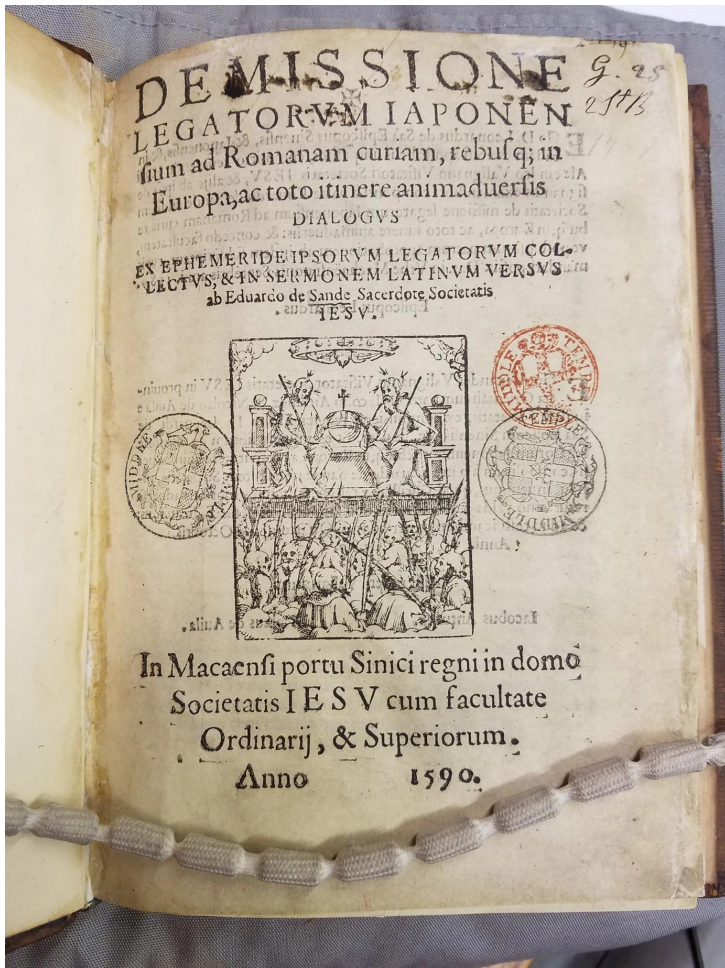 G. 25
DE MISSIONE
LEGATORVM IAPONEN
sium ad Romanam curiam, rebusq; in
Europa, ac toto itinere animaduersis
DIALOGVS
EX EPHEMERIDE IPSORVM LEGATORVM COL-
LECTVS, & IN SERMONEM LATINVM VERSVS
ab Eduardo de Sande Sacerdote Societatis
IESV.
MIDDLE TEMPLE
MIDDLE TEMPLE
MIDDLE TEMPLE
In Macaensi portu Sinici regni in domo
Societatis IESV cum facultate
Ordinarij, & Superiorum.
Anno 1590.